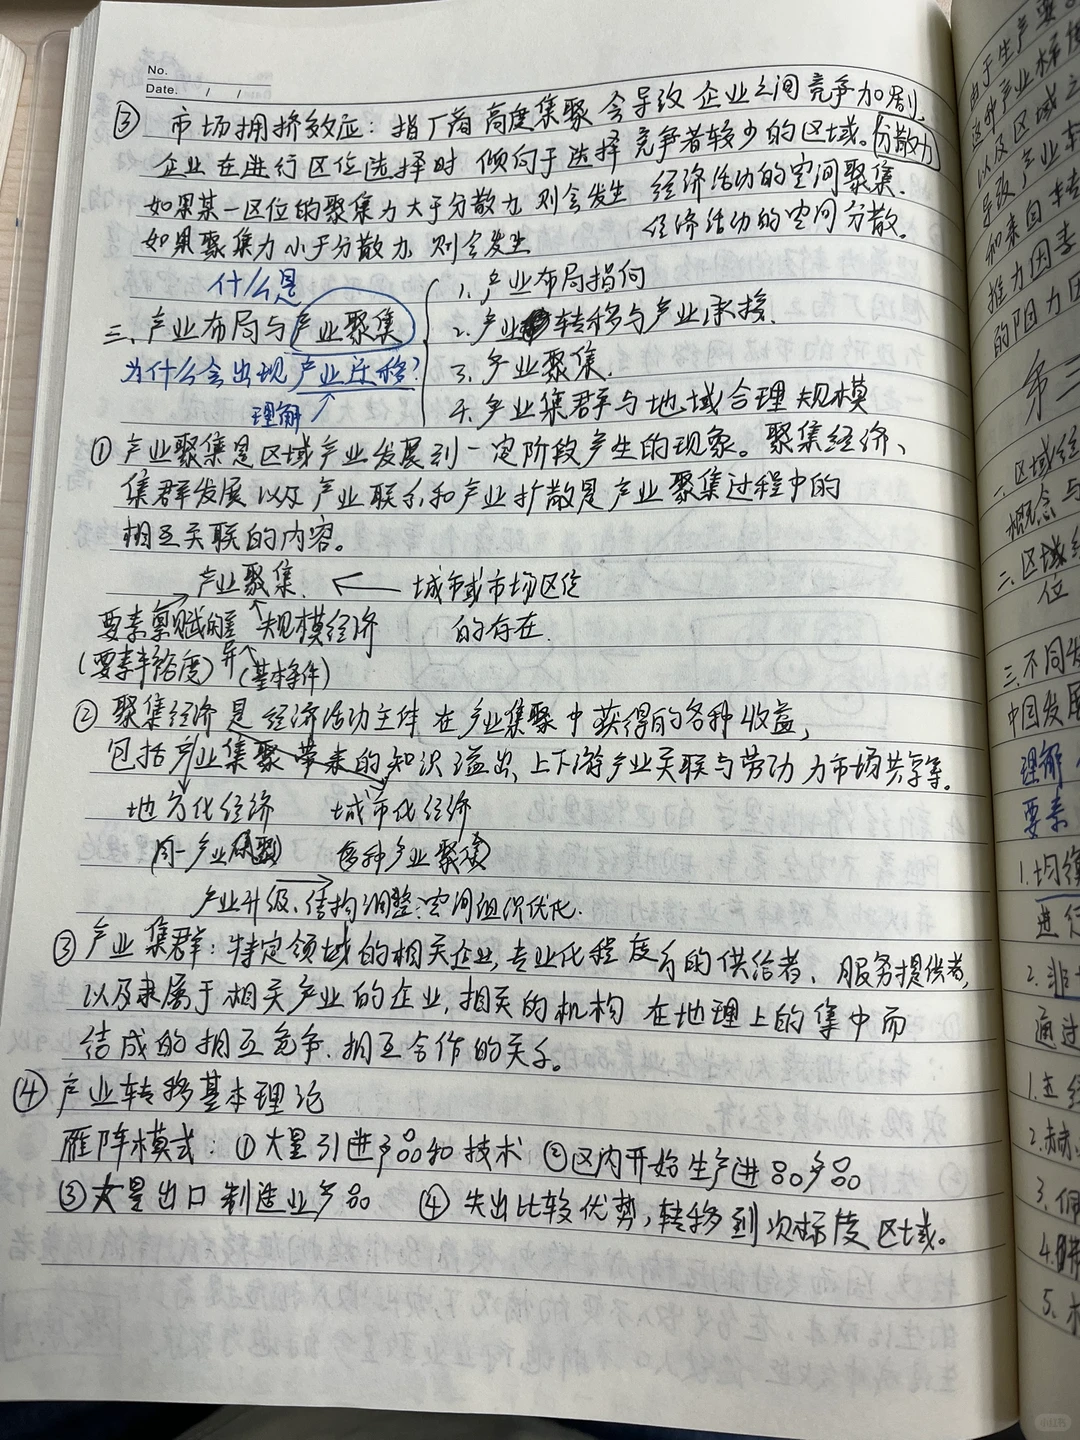 No.
Date. / /
③ 市场拥挤效应：指厂商高度集聚会导致企业之间竞争加剧,
企业在进行区位选择时倾向于选择竞争者较少的区域。分散力
如果某一区位的聚集力大于分散力,则会发生 经济活动的空间聚集.
如果聚集力小于分散力,则会发生 经济活动的空间分散.
什么是
三、产业布局与产业聚集
为什么会出现产业迁移?
理解
1. 产业布局指向
2. 产业转移与产业承接.
3. 产业聚集.
4. 产业集群与地域合理规模
① 产业聚集是区域产业发展到一定阶段产生的现象。聚集经济、
集群发展以及产业联系和产业扩散是产业聚集过程中的
相互关联的内容。
产业聚集. ← 城市或市场区位
的存在.
要素禀赋的差异 规模经济
(要素丰裕度) (基本条件)
② 聚集经济是经济活动主体在产业集聚中获得的各种收益,
包括产业集聚带来的知识溢出、上下游产业关联与劳动力市场共享等。
地方化经济 城市化经济
同一产业 各种产业聚集
产业升级、结构调整:空间组织优化.
③ 产业集群：特定领域的相关企业,专业化程度高的供给者、服务提供者,
以及隶属于相关产业的企业,相关的机构在地理上的集中而
结成的相互竞争.相互合作的关系。
④ 产业转移基本理论
雁阵模式：① 大量引进产品和技术 ② 区内开始生产进口产品
③ 大量出口制造业产品 ④ 失出比较优势,转移到次梯度区域。
由于生产要
这种产业梯度
以及区域之
导致产业转
和来自转
推力因素
的阻力因
第三
一、区域经
概念与
二、区域经
位
三、不同发
中国发展
理解
要素
1. 均衡
进行
2. 非
通过
1. 主
2. 赫
3. 佩
4.
5.
小红书